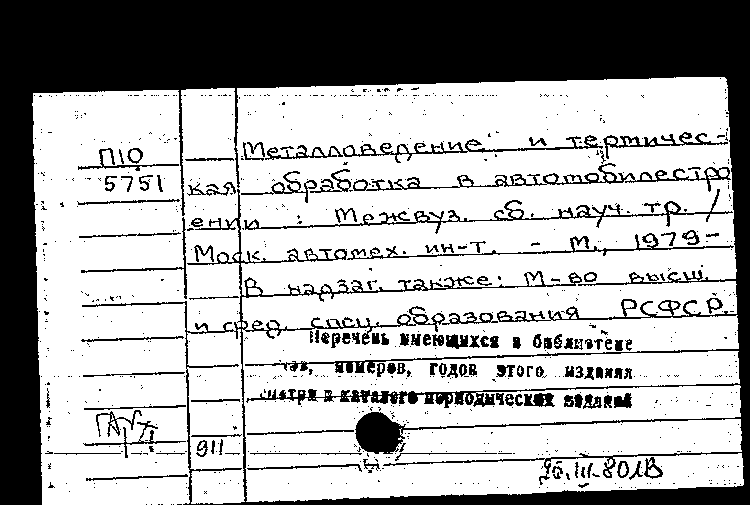 П10
5751
Металловедение и термичес-
кая обработка в автомобилестро
ении : Межвуз. сб. науч. тр. /
Моск. автомех. ин-т. - М., 1979-
В надзаг. также: М-во высш.
и сред. спец. образования РСФСР.
Перечень имеющихся в библиотеке
номеров, годов этого издания
смотри в каталоге периодических изданий
911
26.III.80